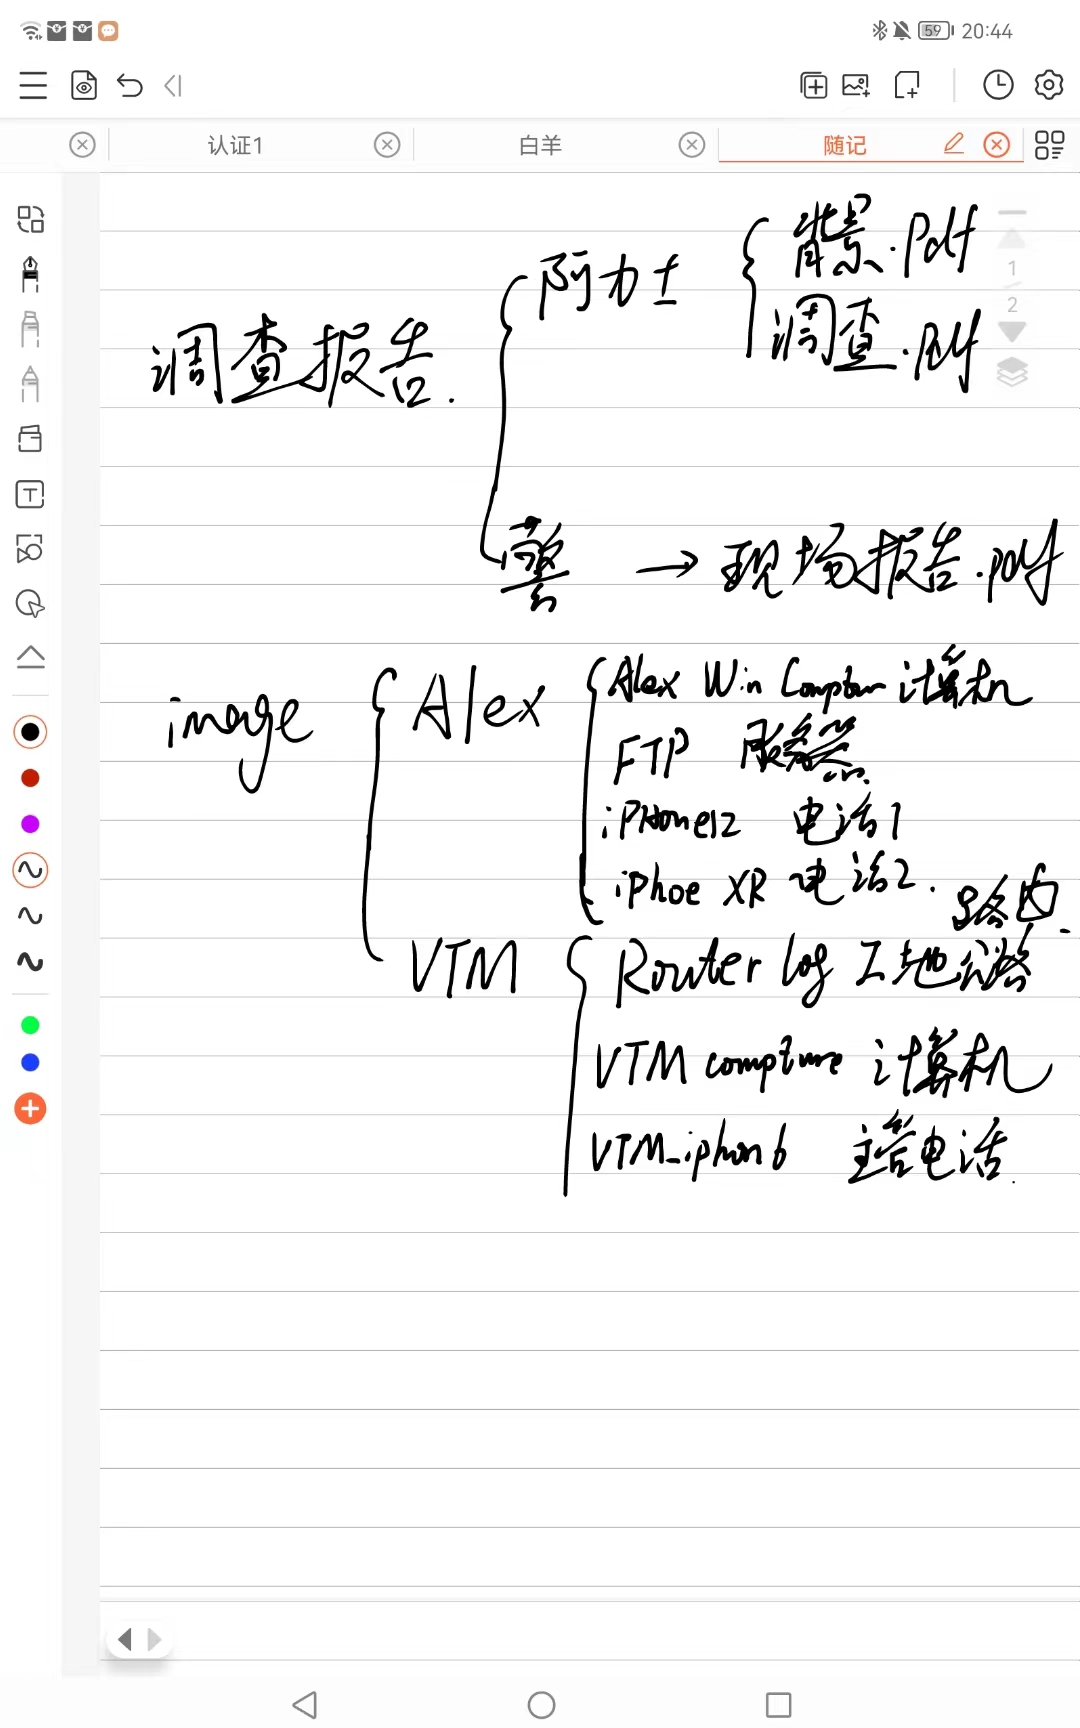 59 20:44
认证1 白羊 随记
阿力士 背景.pdf
1
2
调查报告. 调查.pdf
警 → 现场报告.pdf
image Alex Alex Win Comptur 计算机
FTP 服务器
iPHone12 电话1
iPhoe XR 电话2.
路由.
VTM Router log 工地公路
VTM compture 计算机
VTM_iphon6 主管电话.